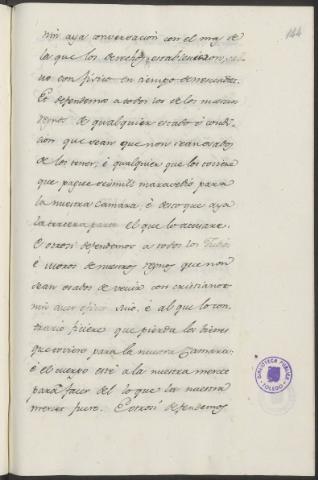 144
nin aya conversación con el mas de
la que los derechos establecieron, sal-
vo con físico en tiempo de necesidad.
Et defendemos a todos los de los nuestros
regnos de qualquier estado è condi-
ción que sean que non sean osados
de los tener, è qualquier que los toviere
que pague seismill maravedis para
la nuestra Camara, è desto que aya
la tercera parte el que lo acusare.
E otrosi defendemos a todos los Judios
è moros de nuestros regnos que non
sean osados de venir con cristianos
nin aver oficio suio, è al que lo con-
trario ficiere que pierda los bienes
que toviere para la nuestra Camara;
è el cuerpo esté a la nuestra merced
para facer del lo que la nuestra
merced fuere. E otrosi defendemos
BIBLIOTECA PÚBLICA
TOLEDO